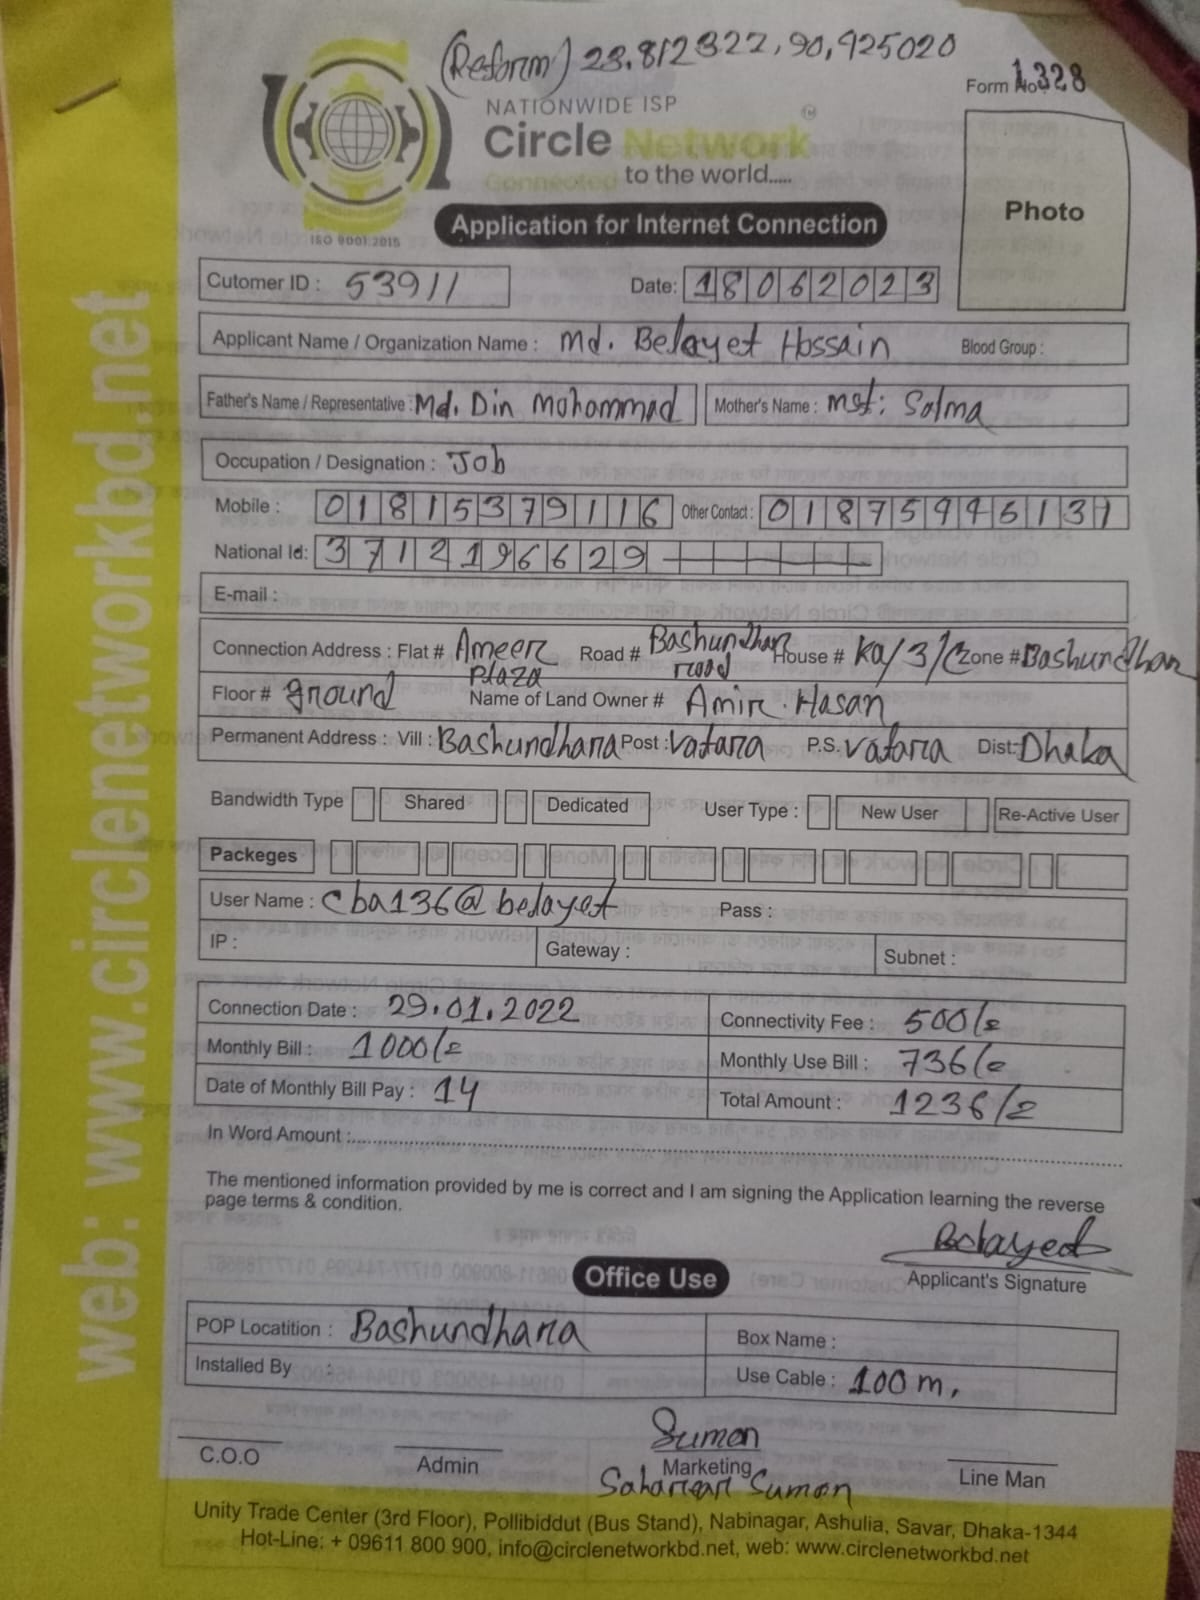 (Reform) 23.812322, 90.425020
Form No 1328
NATIONWIDE ISP
Circle Network
Connected to the world.....
ISO 9001:2015
Application for Internet Connection
Photo
Cutomer ID : 53911
Date: 18062023
Applicant Name / Organization Name : Md. Belayet Hossain Blood Group :
Father's Name / Representative : Md. Din Mohammad Mother's Name : Mst: Salma
Occupation / Designation : Job
Mobile : 01815379116 Other Contact : 01875946131
National Id: 3712196629
E-mail :
Connection Address : Flat # Ameer Plaza Road # Bashundhara road House # Ka/3/C Zone # Bashundhara
Floor # ground Name of Land Owner # Amir Hasan
Permanent Address : Vill : Bashundhara Post : Vatara P.S. Vatara Dist: Dhaka
Bandwidth Type Shared Dedicated User Type : New User Re-Active User
Packeges
User Name : cba136@belayet Pass :
IP : Gateway : Subnet :
Connection Date : 29.01.2022 Connectivity Fee : 500/=
Monthly Bill : 1000/= Monthly Use Bill : 736/=
Date of Monthly Bill Pay : 14 Total Amount : 1236/=
In Word Amount :
The mentioned information provided by me is correct and I am signing the Application learning the reverse
page terms & condition.
Belayet
Applicant's Signature
Office Use
POP Locatition : Bashundhara Box Name :
Installed By : Use Cable : 100 m.
Suman
C.O.O Admin Marketing Line Man
Sahariar Suman
Unity Trade Center (3rd Floor), Pollibiddut (Bus Stand), Nabinagar, Ashulia, Savar, Dhaka-1344
Hot-Line: + 09611 800 900, info@circlenetworkbd.net, web: www.circlenetworkbd.net
web: www.circlenetworkbd.net